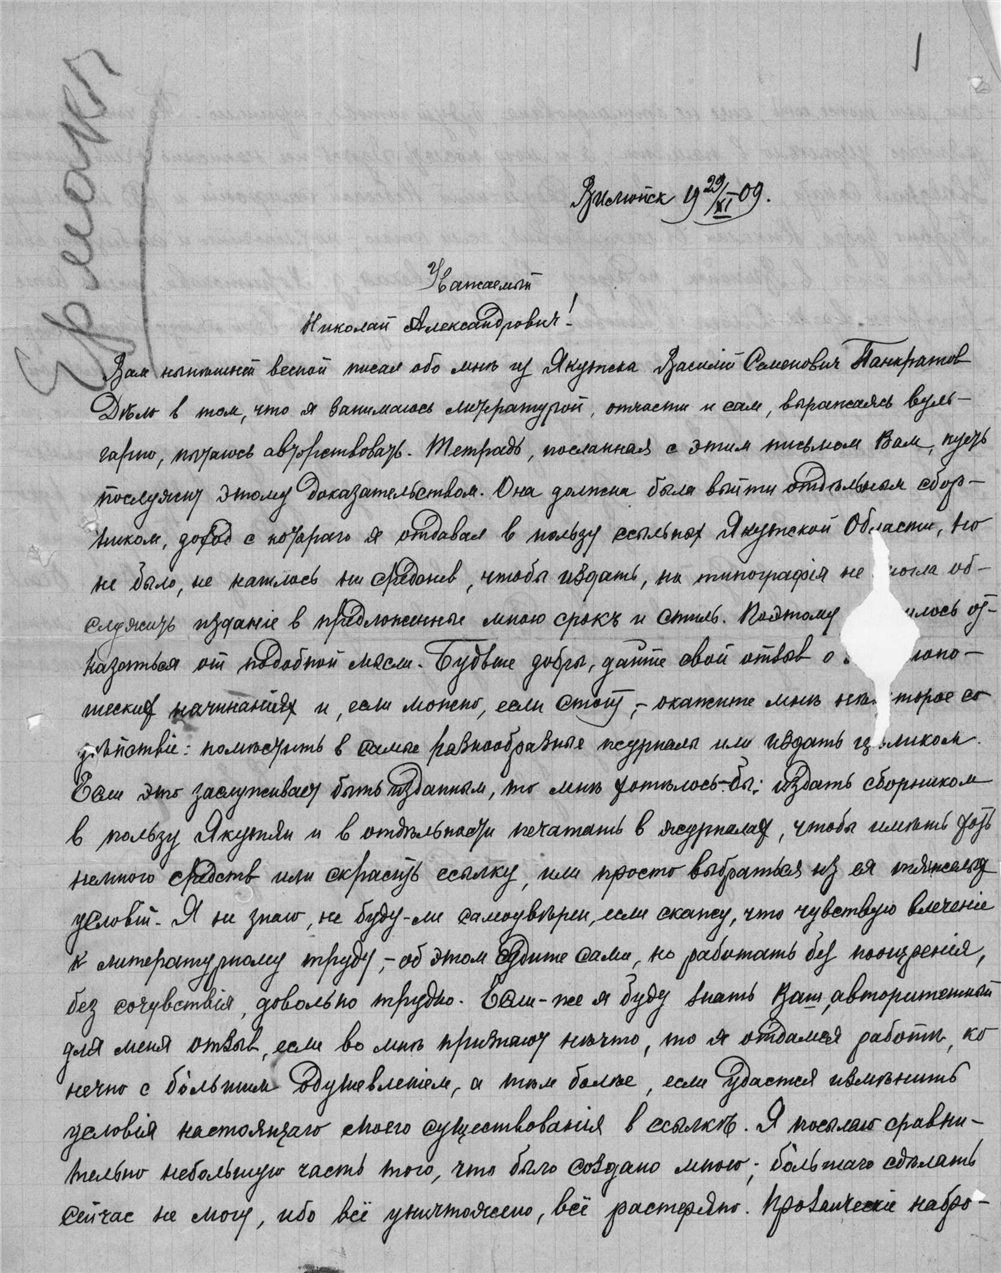 1
Ермаков
Вилюйск 19 29/XI 09.
Уважаемый
Николай Александрович!
Вам нынешней весной писал обо мнѣ из Якутска Василий Семенович Панкратов
Дѣло в том, что я занимаюсь литературой, отчасти и сам, выражаясь вуль-
гарно, пытаюсь авторствовать. Тетрадь, посланная с этим письмом Вам, пусть
послужит этому доказательством. Она должна была выйти отдѣльным сбор-
ником, доход с котораго я отдавал в пользу ссыльных Якутской Области, но
не было, не нашлось ни средств, чтобы издать, ни типографія не могла об-
служить изданіе в предложенные мною срокъ и стиль. Поэтому лось от-
казаться от подобной мысли. Будьте добры, дайте свой отзыв о
ческих начинаніях и, если можно, если стоит, – окажите мнѣ нѣкоторое со
дѣйствіе: помѣстить в самые разнообразные журналы или издать цѣликом.
Если это заслуживает быть изданным, то мнѣ хотѣлось-бы: издать сборником
в пользу Якутян и в отдѣльности печатать в журналах, чтобы имѣть хоть
немного средств или скрасить ссылку, или просто выбраться из ея тяжелых
условій. Я не знаю, не буду-ли самоувѣрен, если скажу, что чувствую влеченіе
к литературному труду, – об этом судите сами, но работать без поощренія,
без сочувствія, довольно трудно. Если-же я буду знать Ваш, авторитетный
для меня отзыв, если во мнѣ признают нѣчто, то я отдамся работѣ, ко
нечно с бóльшим одушевленіем, а тѣм болѣе, если удастся измѣнить
условія настоящаго моего существованія в ссылкѣ. Я посылаю сравни-
тельно небольшую часть того, что было создано мною; бóльшаго сдѣлать
сейчас не могу, ибо всё уничтожено, всё растеряно. Прозаическіе набро-